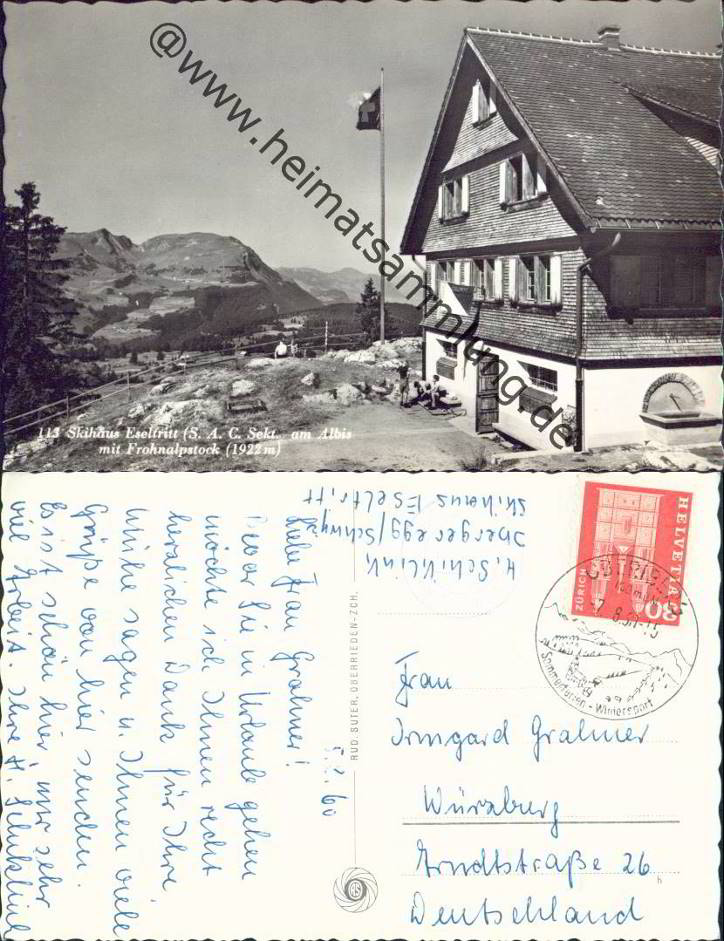 @www.heimatsammlung.de
113 Skihaus Eseltritt (S. A. C. Sekt. am Albis
mit Frohnalpstock (1922 m)
Ibergeregg/Schwyz
Skihaus Eseltritt
5.8.60
Liebe Frau Gralmer!
Bevor Sie in Urlaub gehen
möchte ich Ihnen recht
herzlichen Dank für Ihre
Mühe sagen u. Ihnen viele
Grüße von hier senden.
Es ist schön hier nur sehr
viel Arbeit. Ihre H.
RUD. SUTER, OBERRIEDEN-ZCH.
HELVETIA
ZÜRICH
30
OBERIBERG
Sommerferien - Wintersport
Frau
Irmgard Gralmer
Würzburg
Arndtstraße 26
Deutschland